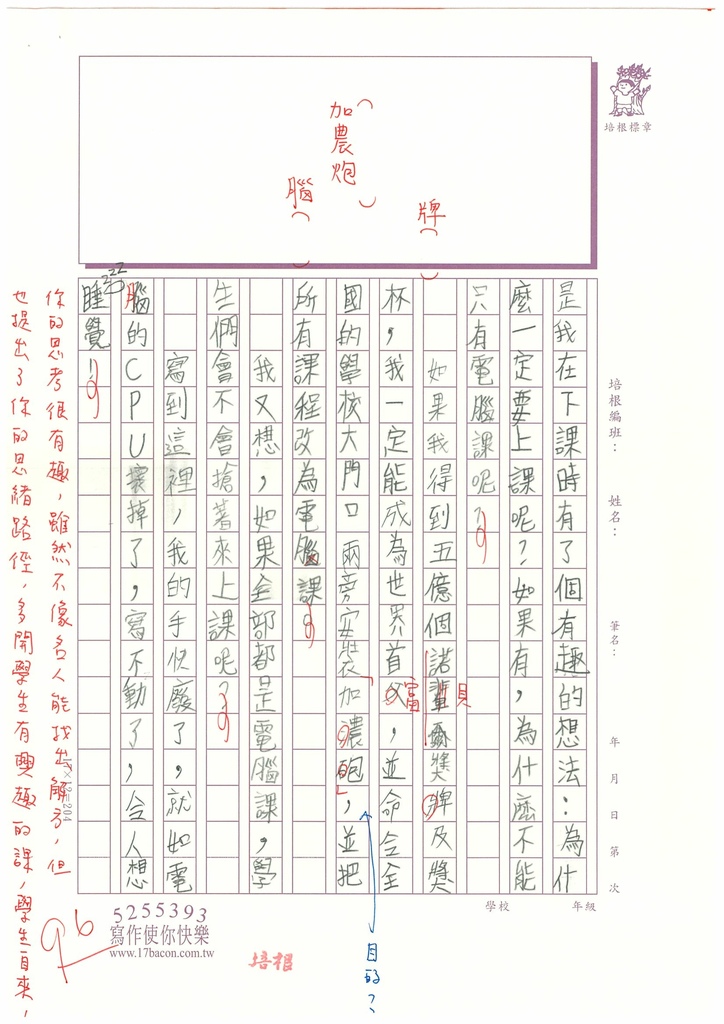 培根標章
牌（ ）
（加農炮）
腦（ ）
培根編班：　姓名：　筆名：　年　月　日　第　次
學校　年級
是我在下課時有了個有趣的想法：為什
麼一定要上課呢？如果有，為什麼不能
只有電腦課呢？
如果我得到五億個諾輩爾獎牌及獎
貝
杯，我一定能成為世界首父，並命令全
富
國的學校大門口兩旁安裝「加濃砲」，並把
目的？
所有課程改為電腦課。
我又想，如果全部都是電腦課，學
生們會不會搶著來上課呢？
寫到這裡，我的手快廢了，就如電
腦的CPU壞掉了，寫不動了，令人想
睡覺!!
zzz
17×12=204
你的思考很有趣，雖然不像名人能找出解方，但
也提出了你的思緒路徑，多開學生有興趣的課，學生自來！
96
5255393
寫作使你快樂
www.17bacon.com.tw
培根